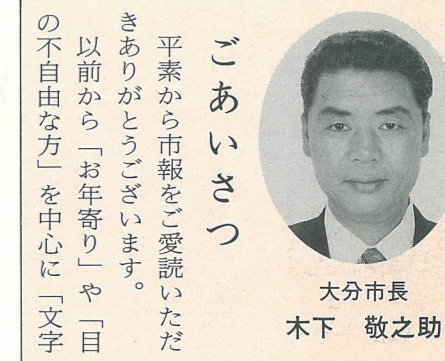 大分市長
木下 敬之助
ごあいさつ
平素から市報をご愛読いただ
きありがとうございます。
以前から「お年寄り」や「目
の不自由な方」を中心に「文字